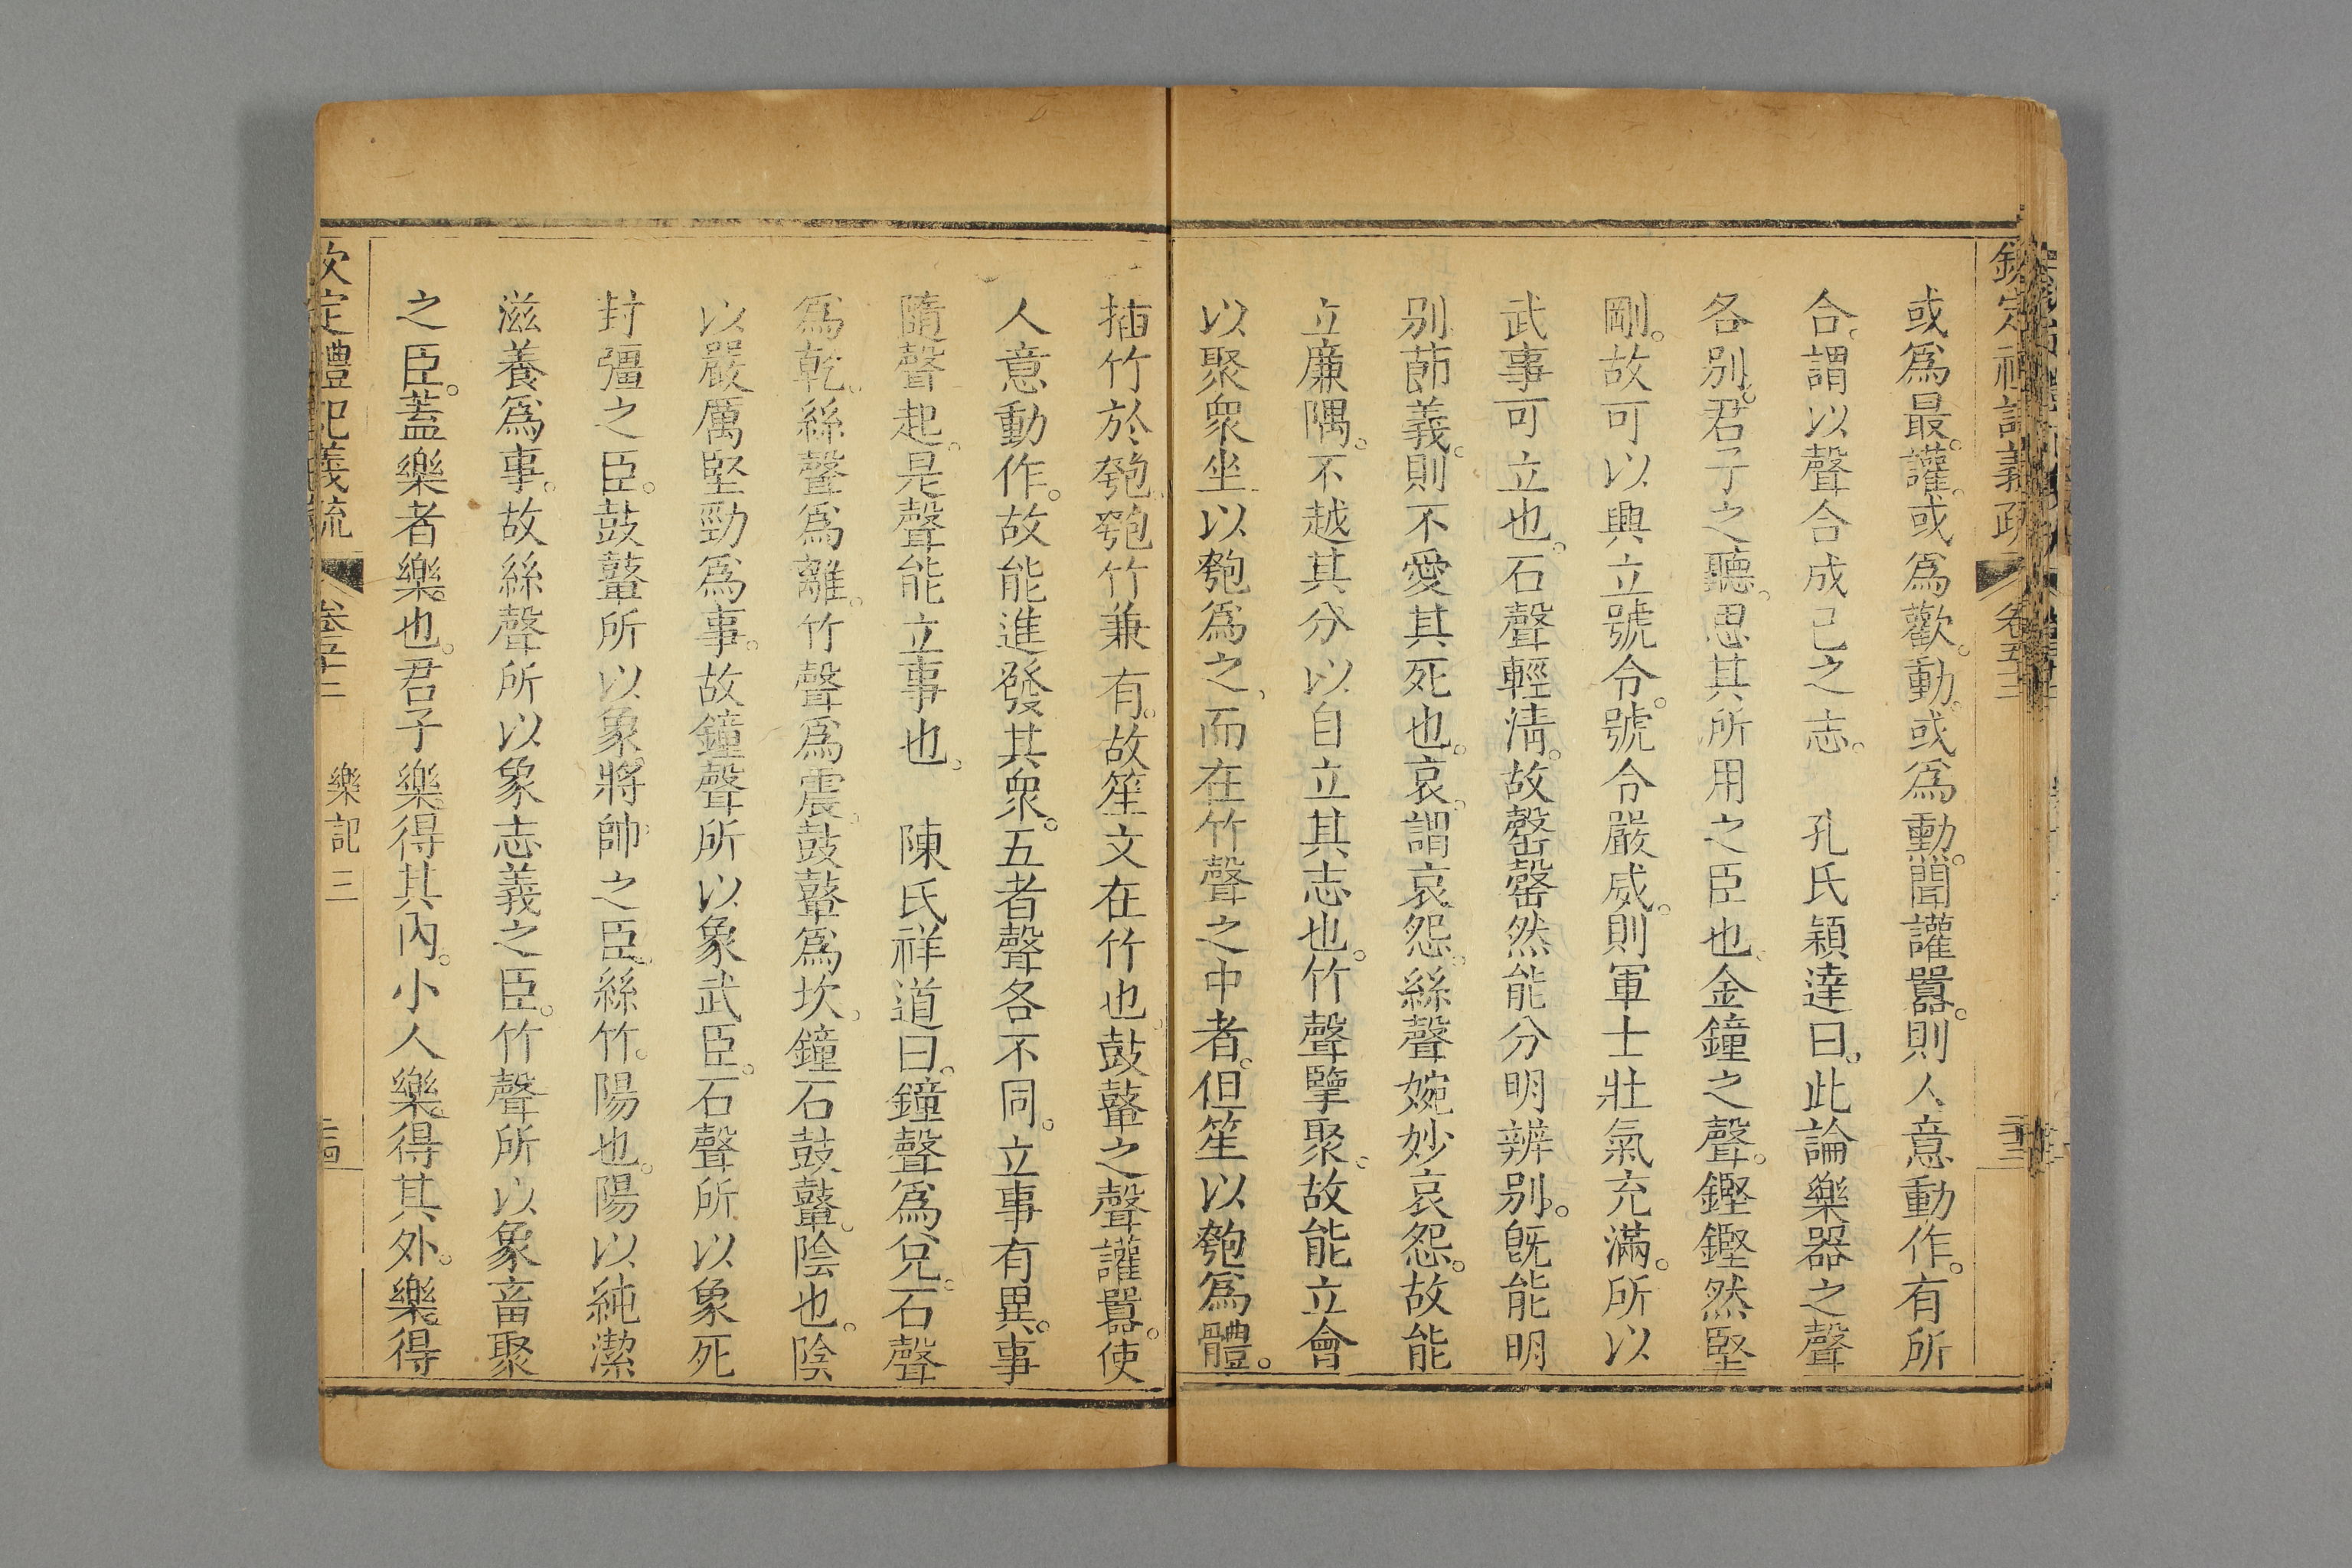 或爲最。讙。或爲歡。動。或爲勳。聞讙囂。則人意動作。有所
合。謂以聲合成己之志。　孔氏穎達曰。此論樂器之聲
各别。君子之聽。思其所用之臣也。金鐘之聲。鏗鏗然堅
剛。故可以興立號令。號令嚴威。則軍士壯氣充滿。所以
武事可立也。石聲輕淸。故罄罄然能分明辨别。旣能明
别莭義。則不愛其死也。哀。謂哀怨。絲聲婉妙哀怨。故能
立廉隅。不越其分以自立其志也。竹聲擥聚。故能立會
以聚衆。坐以匏爲之。而在竹聲之中者。但笙以匏爲體。
插竹於匏。匏竹兼有。故笙文在竹也。鼓鼙之聲讙囂。使
人意動作。故能進發其衆。五者聲各不同。立事有異。事
隨聲起。是聲能立事也。　陳氏祥道曰。鐘聲爲兌。石聲
爲乾。絲聲爲離。竹聲爲震。鼓鼙爲坎。鐘石鼓鼙。陰也。陰
以嚴厲堅勁爲事。故鐘聲所以象武臣。石聲所以象死
封彊之臣。鼓鼙所以象將帥之臣。絲竹。陽也。陽以純潔
滋養爲事。故絲聲所以象志義之臣。竹聲所以象畜聚
之臣。蓋樂者樂也。君子樂得其內。小人樂得其外。樂得
欽定禮記義疏　卷五十二　樂記三